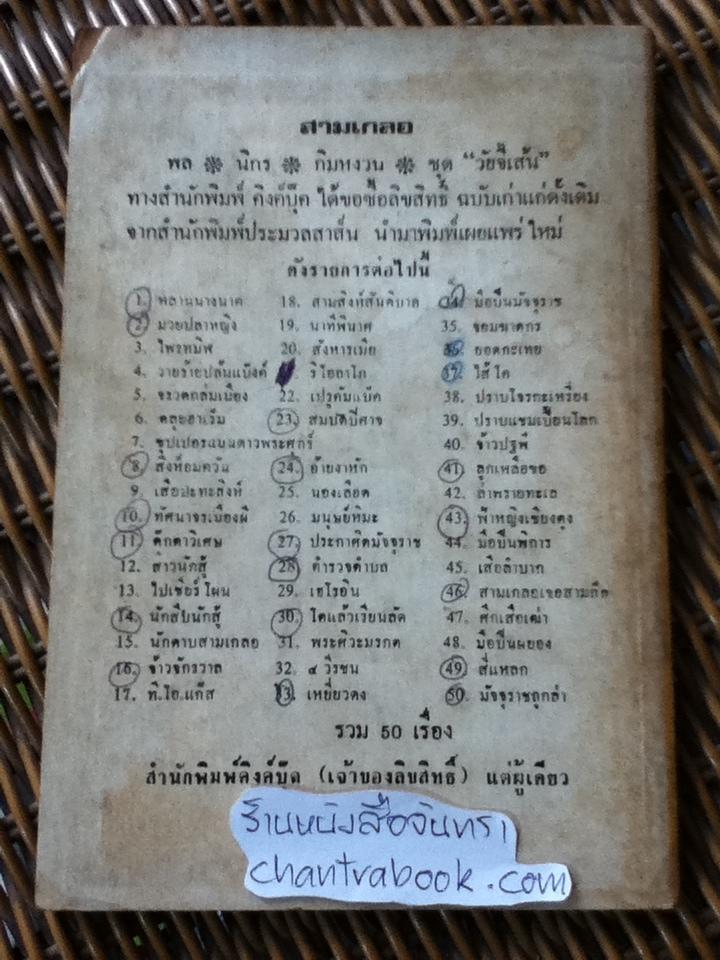 สามเกลอ
พล ❋ นิกร ❋ กิมหงวน ❋ ชุด “วัยจี๊เส้น”
ทางสำนักพิมพ์ คิงค์บุ๊ค ได้ขอซื้อลิขสิทธิ์ ฉบับเก่าแก่ดั้งเดิม
จากสำนักพิมพ์ประมวลสาส์น นำมาพิมพ์เผยแพร่ใหม่
ดังรายการต่อไปนี้
1. พลานนางนาค
2. มวยปลาหญิง
3. ไพรทมิฬ
4. วายร้ายปล้นแบ๊งค์
5. จรวดถล่มเมือง
6. ตลุยฮาเร็ม
7. ซุปเปอรแมนดาวพระศุกร์
8. สิงห์อมควัน
9. เสือปะทะสิงห์
10. ทัศนาจรเมืองผี
11. ตึกดาวเศษ
12. สาวนักสู้
13. ไปเซียร์โฝน
14. นักสืบนักสู้
15. นักดาบสามเกลอ
16. จ้าวจักรวาล
17. ที.ไอ.แก๊ส
18. สามสิงห์สันติบาล
19. นาทีพินาศ
20. สังหารเมีย
ริโอลาโก
22. เปรูคัมแบ๊ค
23. สมบัติปีศาจ
24. อ้ายงาหัก
25. นองเลือด
26. มนุษย์หิมะ
27. ประกาศิตมัจจุราช
28. ตำรวจตำบล
29. เฮโรอิน
30. ไดแล้วเรียนลัด
31. พระศิวะมรกต
32. ๔ วีรชน
33. เหยี่ยวดง
34. มือปืนมัจจุราช
35. จอมฆาตกร
36. ยอดกะเทย
37. ไส้โค
38. ปราบโจรกะเหรี่ยง
39. ปราบแชมเปี้ยนโลก
40. จ้าวปฐพี
41. ลูกเหลือขอ
42. ล่าพรายทะเล
43. ฟ้าหญิงเชียงตุง
44. มือปืนพิการ
45. เสือลำบาก
46. สามเกลอเจอสามถึก
47. ศึกเสือเฒ่า
48. มือปืนผยอง
49. สี่แหลก
50. มัจจุราชถูกล่า
รวม 50 เรื่อง
สำนักพิมพ์คิงค์บุ๊ค (เจ้าของลิขสิทธิ์) แต่ผู้เดียว
ร้านหนังสือจันทรา
chantrabook.com